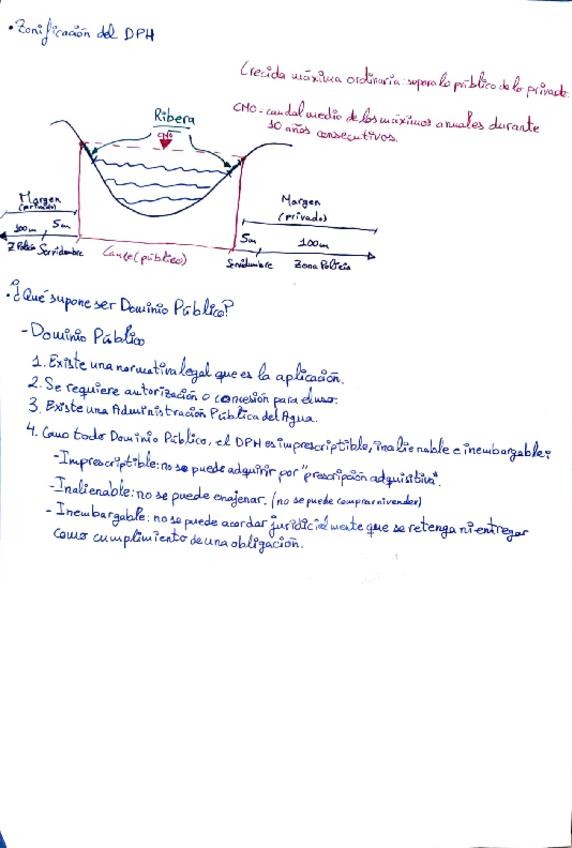 • Zonificación del DPH
Crecida máxima ordinaria: separa lo público de lo privado.
CMO - caudal medio de los máximos anuales durante
10 años consecutivos.
Ribera
CMO
Margen
(privado)
100m, 5m
Z Policía Servidumbre
Cauce (público)
Margen
(privado)
5m 100m
Servidumbre Zona Policía
• ¿Qué supone ser Dominio Público?
- Dominio Público
1. Existe una normativa legal que es la aplicación.
2. Se requiere autorización o concesión para el uso.
3. Existe una Administración Pública del Agua.
4. Como todo Dominio Público, el DPH es imprescriptible, inalienable e inembargable:
- Imprescriptible: no se puede adquirir por "prescripción adquisitiva".
- Inalienable: no se puede enajenar. (no se puede comprar ni vender)
- Inembargable: no se puede acordar juridicialmente que se retenga ni entregar
como cumplimiento de una obligación.